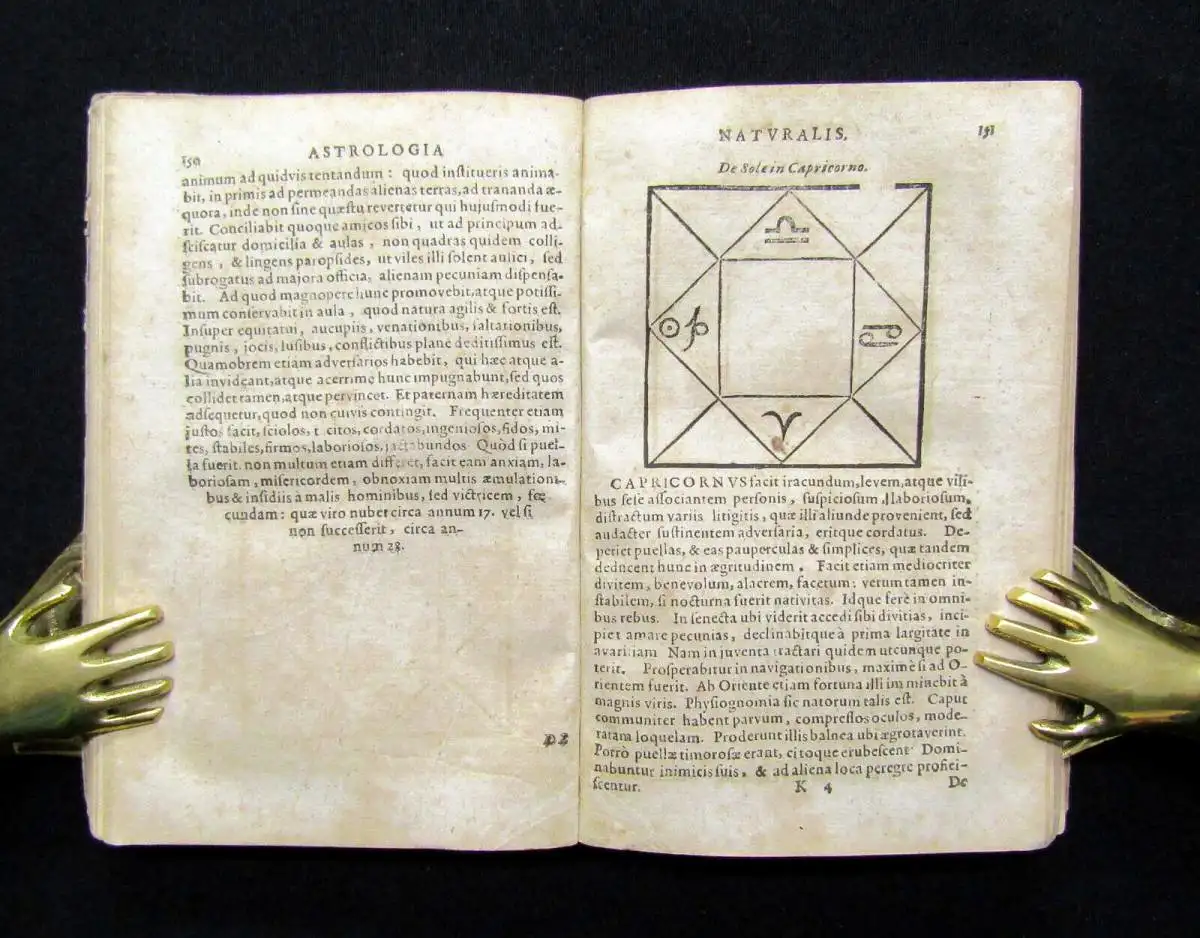 150
ASTROLOGIA
animum ad quidvis tentandum : quod inſtitueris anima-
bit, in primis ad permeandas alienas terras, ad trananda æ-
quora, inde non ſine quæſtu revertetur qui hujuſmodi fue-
rit. Conciliabit quoque amicos ſibi, ut ad principum ad-
ſciſcatur domicilia & aulas, non quadras quidem colli-
gens, & lingens paropſides, ut viles illi ſolent aulici, ſed
ſubrogatus ad majora officia, alienam pecuniam diſpenſa-
bit. Ad quod magnopere hunc promovebit, atque potiſſi-
mum conſervabit in aula, quod natura agilis & fortis eſt.
Inſuper equitatui, aucupiis, venationibus, ſaltationibus,
pugnis, jocis, luſibus, conflictibus plane deditiſſimus eſt.
Quamobrem etiam adverſarios habebit, qui hæc atque a-
lia invideant, atque acerrime hunc impugnabunt, ſed quos
collidet tamen, atque pervincet. Et paternam hæreditatem
adſequetur, quod non cuivis contingit. Frequenter etiam
juſtos facit, ſciolos, t citos, cordatos, ingenioſos, fidos, mi-
tes, ſtabiles, firmos, laborioſos, jactabundos Quòd ſi puel-
la fuerit. non multum etiam differet, facit eam anxiam, la-
borioſam, miſericordem, obnoxiam multis æmulationi-
bus & inſidiis à malis hominibus, ſed victricem, fœ-
cundam: quæ viro nubet circa annum 17. vel ſi
non ſucceſſerit, circa an-
num 28.
DE
NATVRALIS.
151
De Sole in Capricorno.
♎
☉ ♑
♋
♈
CAPRICORNVS facit iracundum, levem, atque vili-
bus ſeſe aſſociantem perſonis, ſuspicioſum, laborioſum,
diſtractum variis litigitis, quæ illi aliunde provenient, ſed
audacter ſuſtinentem adverſaria, eritque cordatus. De-
periet puellas, & eas pauperculas & ſimplices, quæ tandem
deducent hunc in ægritudinem. Facit etiam mediocriter
divitem, benevolum, alacrem, facetum: verum tamen in-
ſtabilem, ſi nocturna fuerit nativitas. Idque ferè in omni-
bus rebus. In ſenecta ubi viderit accedi ſibi divitias, inci-
piet amare pecunias, declinabitque à prima largitate in
avaritiam Nam in juventa tractari quidem utcunque po-
terit. Proſperabitur in navigationibus, maximè ſi ad O-
rientem fuerit. Ab Oriente etiam fortuna illi imminebit à
magnis viris. Phyſiognomia ſic natorum talis eſt. Caput
communiter habent parvum, compreſſos oculos, mode-
ratam loquelam. Proderunt illis balnea ubi ægrotaverint.
Porrò puellæ timoroſæ erant, citoque erubeſcent Domi-
nabuntur inimicis ſuis, & ad aliena loca peregre profici-
ſcentur.
K 4
De